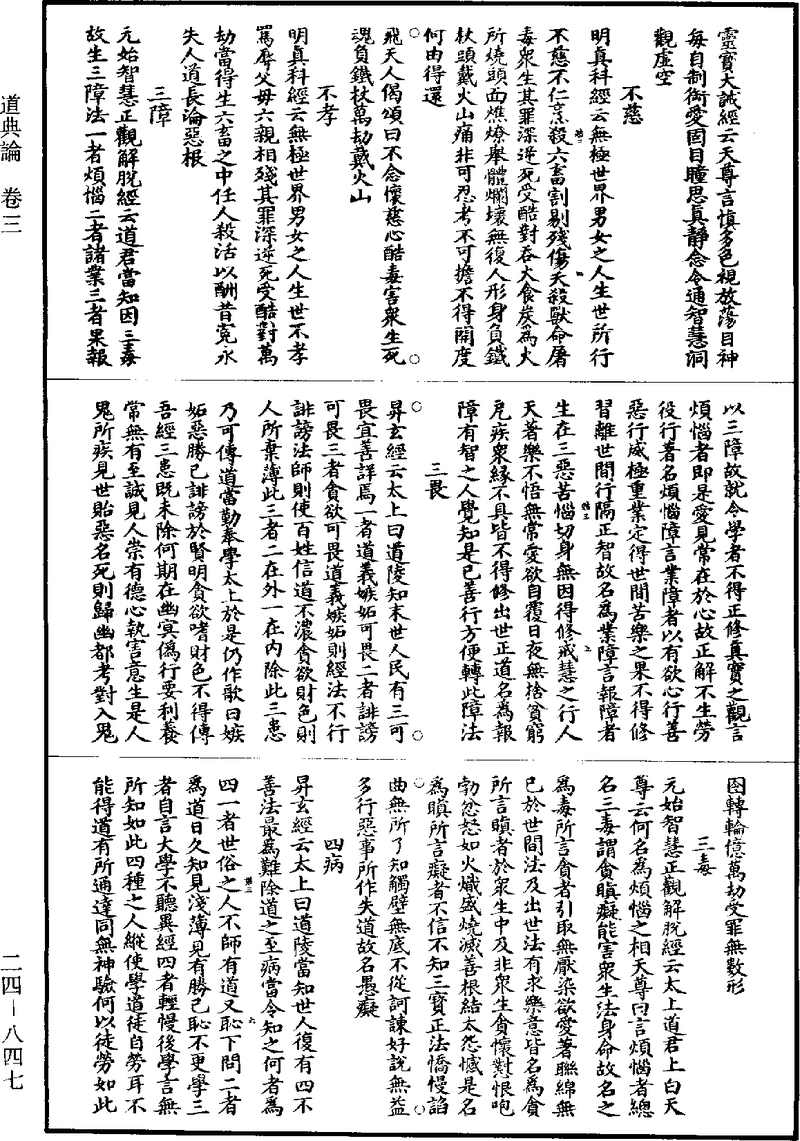 靈寶大誡經云天尊言慎多色視放蕩目神
每自制御愛固目瞳思真静念令通智慧洞
觀虛空
不慈
明真科經云無極世界男女之人生世所行
不慈不仁烹殺六畜割剔殘傷夭殺獸命屠
毒衆生其罪深逆死受酷對吞火食炭爲火
所燒頭面燋燎舉體爛壞無復人形身負鐵
杖頭戴火山痛非可忍考不可擔不得開度
何由得還
飛天人偈頌曰不念懷慈心酷毒害衆生死
魂負鐵杖萬劫戴火山
不孝
明真科經云無極世界男女之人生世不孝
罵辱父母六親相殘其罪深逆死受酷對萬
劫當得生六畜之中任人殺活以酬昔寃永
失人道長淪惡根
三障
元始智慧正觀解脫經云道君當知因三毒
故生三障法一者煩惱二者諸業三者果報
以三障故就令學者不得正修真寶之觀言
煩惱者即是愛見常在於心故正解不生勞
役行者名煩惱障言業障者以有欲心行善
惡行咸極重業定得世間苦樂之果不得修
習離世間行隔正智故名爲業障言報障者
生在三惡苦惱切身無因得修戒慧之行人
天著樂不悟無常愛欲自覆日夜無捨貧窮
尫疾衆緣不具皆不得修出世正道名爲報
障有智之人覺知是已善行方便轉此障法
三畏
昇玄經云太上曰道陵知末世人民有三可
畏宜善詳焉一者道義嫉妬可畏二者誹謗
可畏三者貪欲可畏道義嫉妬則經法不行
誹謗法師則使百姓信道不濃貪欲財色則
人所棄薄此三者二在外一在內除此三患
乃可傳道當勤奉學太上於是仍作歌曰嫉
妬惡勝己誹謗於賢明貪欲嗜財色不得傳
吾經三患既未除何期在幽冥僞行要利養
常無有至誠見人崇有德心執害意生是人
鬼所疾見世貽惡名死則歸幽都考對入鬼
圄轉輪億萬劫受罪無數形
三毒
元始智慧正觀解脫經云太上道君上白天
尊云何名爲煩惱之相天尊曰言煩惱者總
名三毒謂貪瞋癡能害衆生法身命故名之
爲毒所言貪者引取無厭染欲愛著聯綿無
已於世間法及出世法有求樂意皆名爲貪
所言瞋者於衆生中及非衆生貪懷懟恨咆
勃忿怒如火熾盛燒滅善根結太怨憾是名
爲瞋所言癡者不信不知三寶正法憍慢諂
曲無所了知觸壁無底不從訶諫好說無益
多行惡事所作失道故名愚癡
四病
昇玄經云太上曰道陵當知世人復有四不
善法最爲難除道之至病當令知之何者爲
四一者世俗之人不師有道又恥下問二者
爲道日久知見淺薄見有勝己恥不更學三
者自言大學不聽異經四者輕慢後學言無
所知如此四種之人縱使學道徒自勞耳不
能得道有所通達同無神驗何以徒勞如此
道典論 卷三
二四－八四七